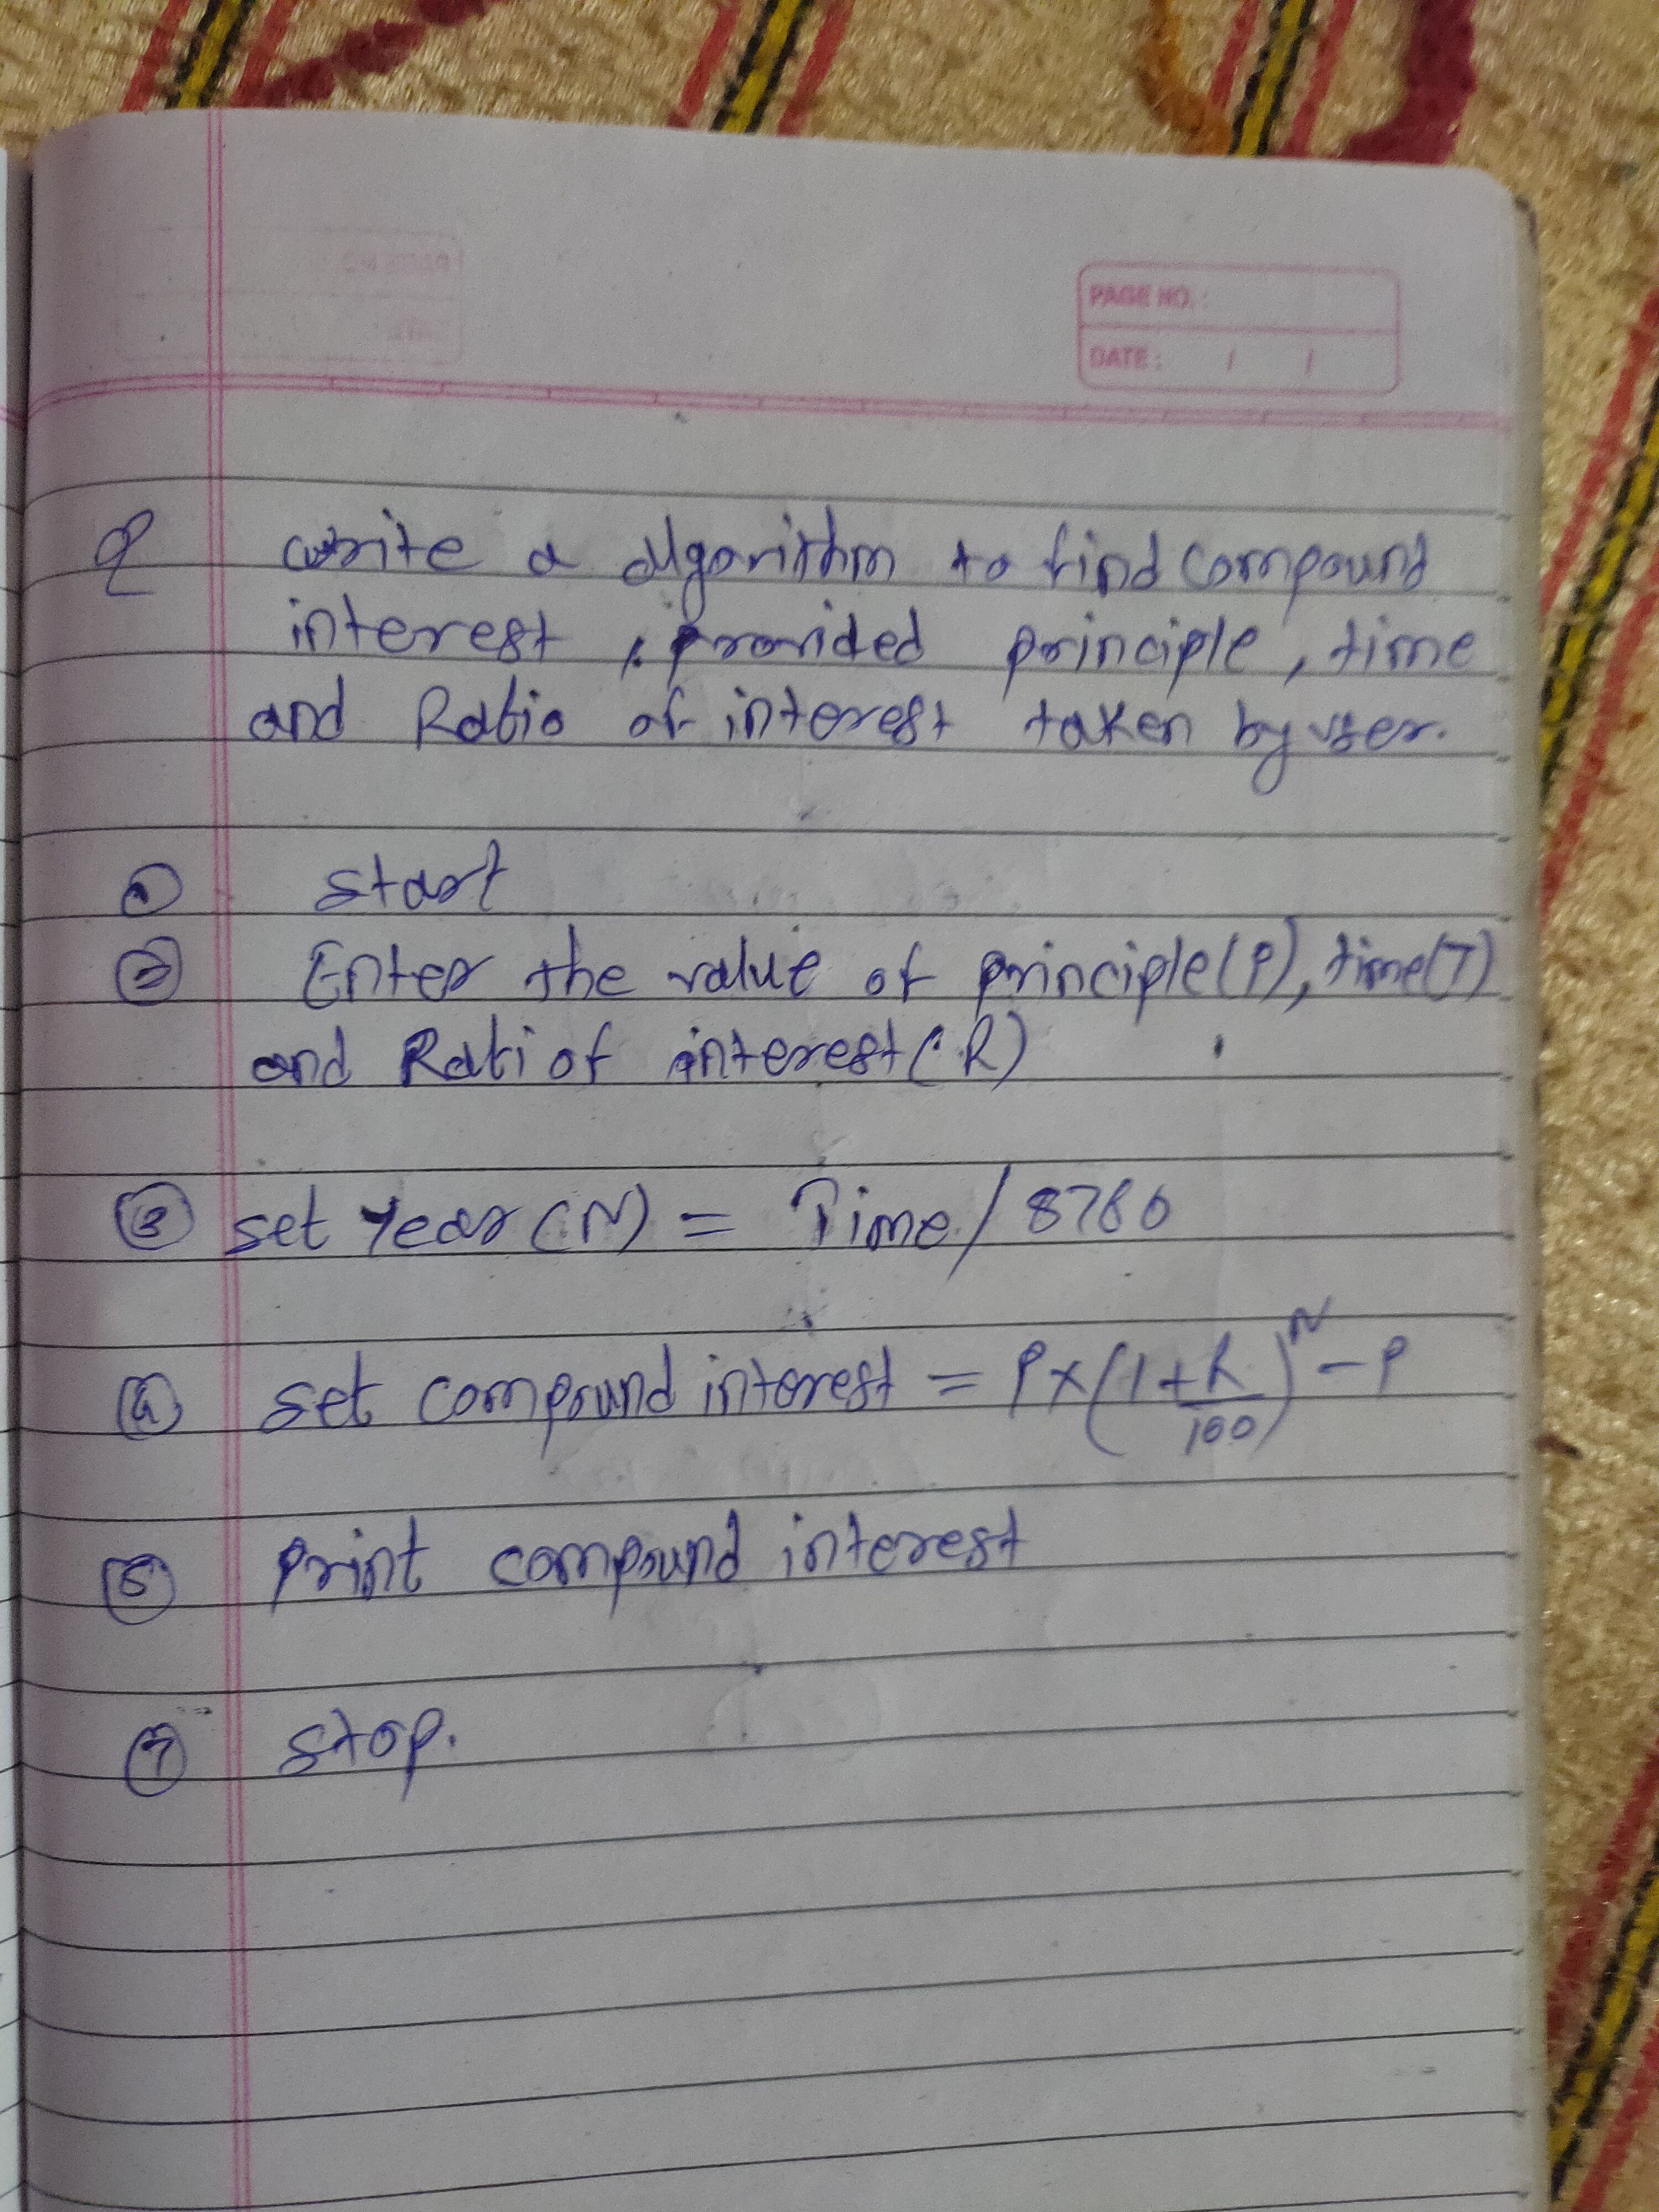 PAGE NO.:
DATE: / /
Q write a algorithm to find compound
interest, provided principle, time
and Ratio of interest taken by user.
① start
② Enter the value of principle(P), time(T)
and Rati of interest(R)
③ set Year (N) = Time / 8760
④ set compound interest = P×(1+R/100)^N - P
⑤ print compound interest
⑦ stop.